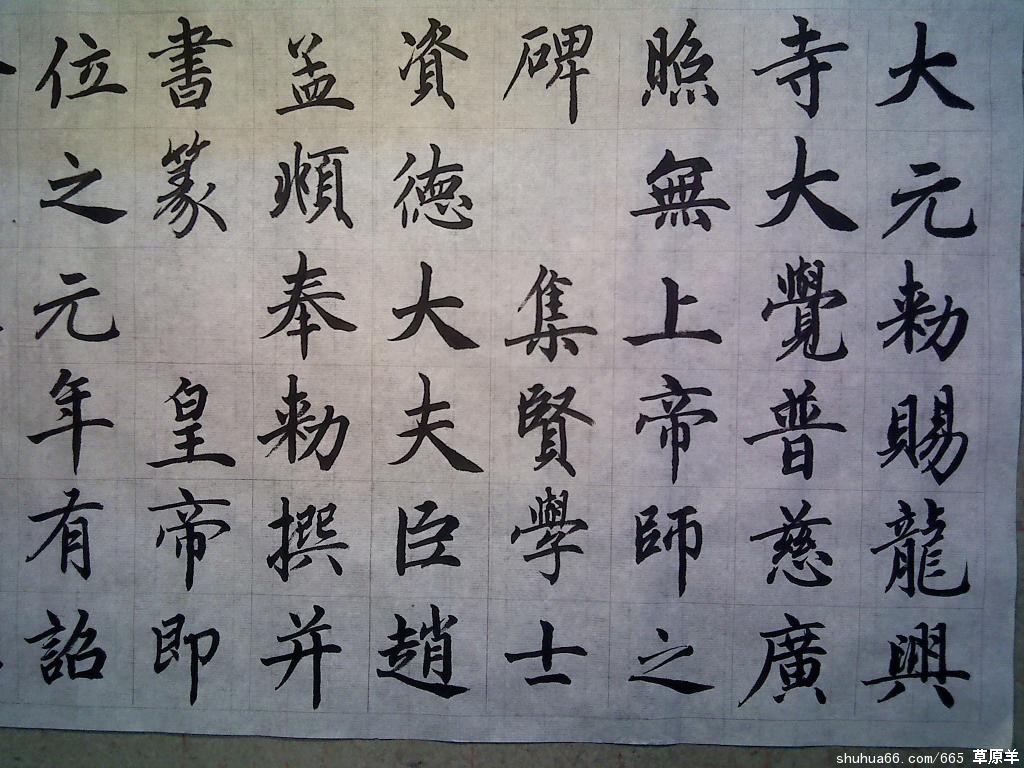 大元勅賜龍興
寺大覺普慈廣
照無上帝師之
碑 集賢學士
資德大夫臣趙
孟頫奉勅撰并
書篆 皇帝即
位之元年有詔
shuhua66.com/665 草原羊